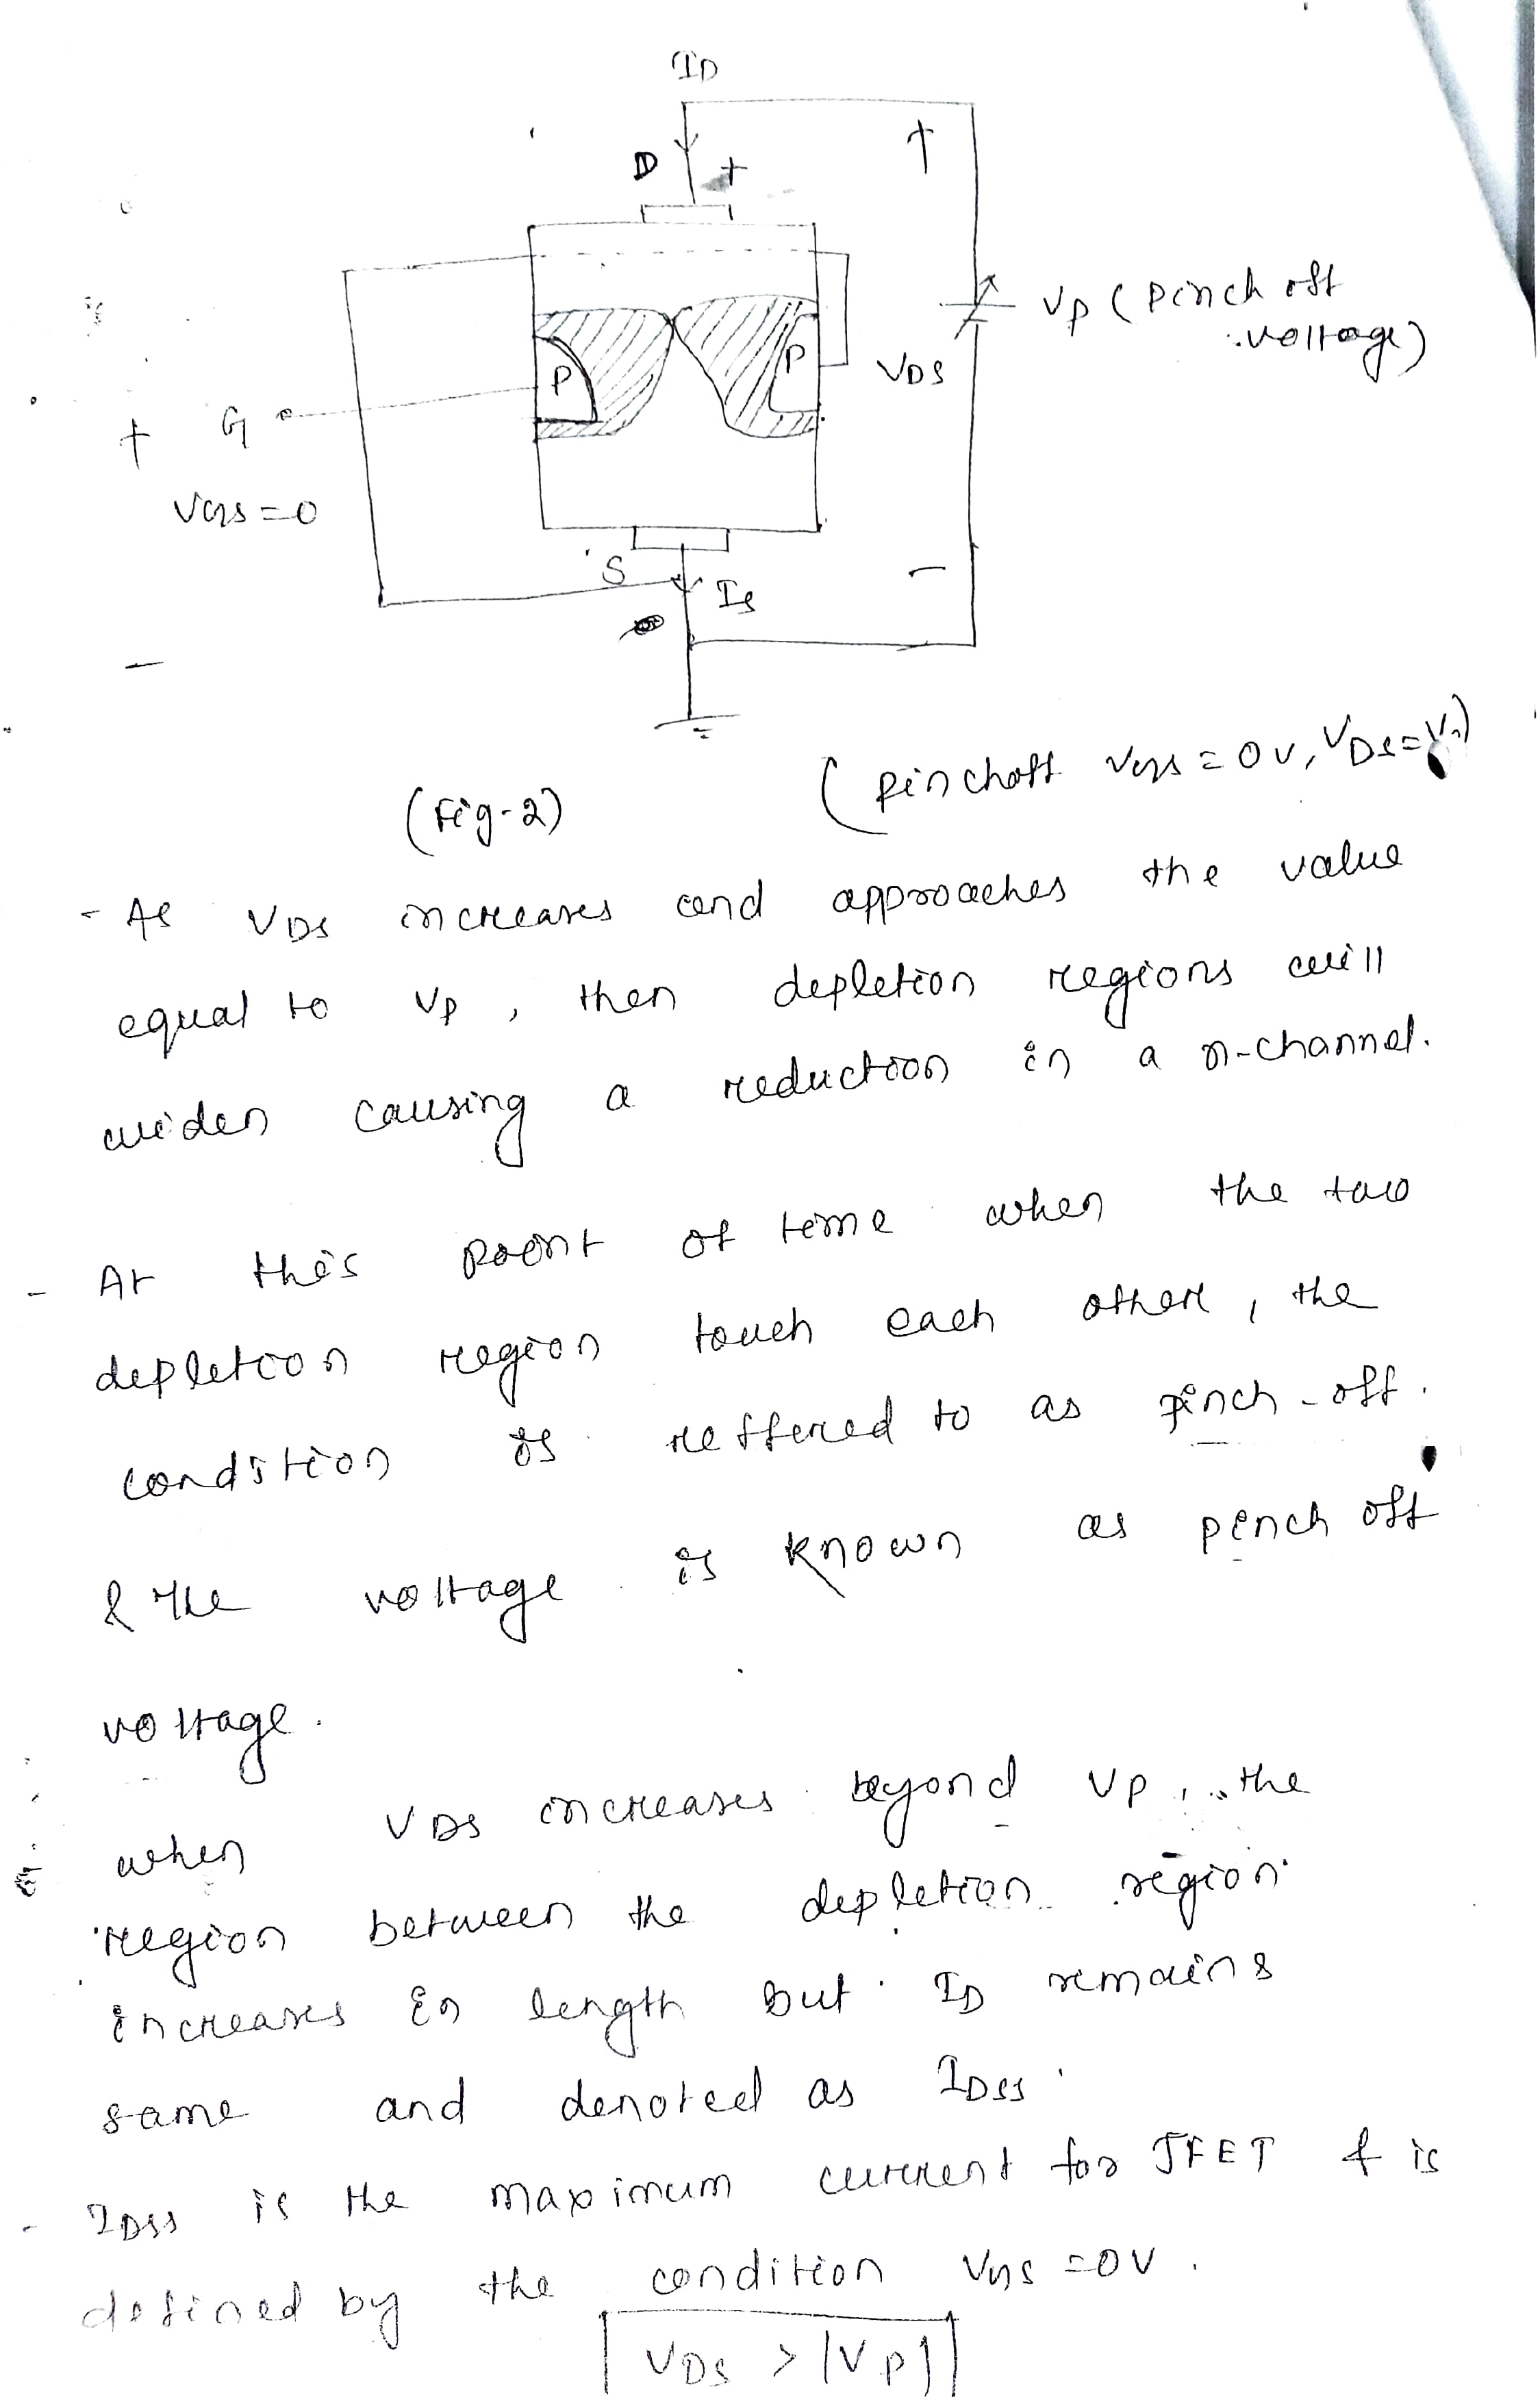 ID
D +
+
VP (Pinch off
voltage)
P
P
VDS
+ G
VGS=0
S
IS
-
-
(Fig-2)
(Pinchoff VGS = 0V, VDS=Vp)
- As VDS increases and approaches the value
equal to VP, then depletion regions will
widen causing a reduction in a n-channel.
- At this point of time when the two
depletion region touch each other, the
condition is reffered to as pinch-off.
& the voltage is known as pinch off
voltage.
when VDS increases beyond VP, the
region between the depletion region
increases in length but ID remains
same and denoted as IDSS.
- IDSS is the maximum current for JFET & is
defined by the condition VGS =0V.
VDS > |VP|